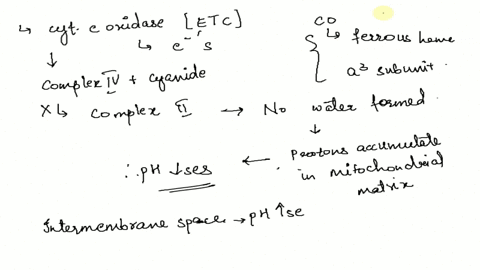 ↳ cyt. c oxidase [ETC]
↳ e⁻'s
CO
↳ ferrous heme
a³ subunit.
↓
Complex IV + cyanide
X↳ Complex II → No water formed.
↓
Protons accumulate
in mitochondrial
matrix
←
∴ pH ↓ses
Intermembrane space → pH ↑se